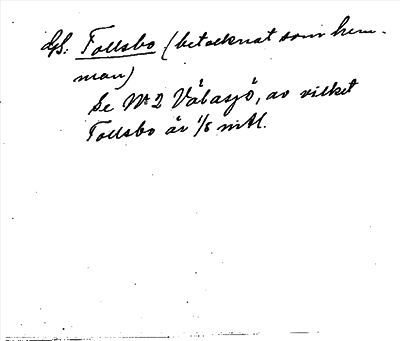 G/S: Follsbo (betecknat som hem-
man)
Se Nr 2 Våbasjö, av vilket
Follsbo är 1/8 mtl.